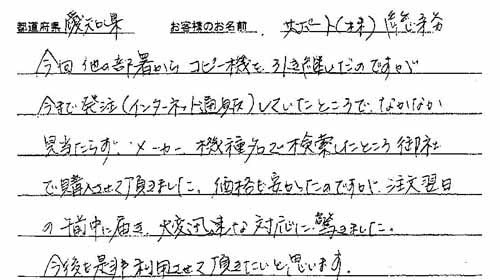 都道府県 愛知県 お客様のお名前 サポート(株) 総務
今回他の部署からコピー機を引き継いだのですが
今まで発注(インターネット通販)していたところで、なかなか
見当たらず、メーカー、機種名で検索したところ御社
で購入させて頂きました。価格も安かったのですが、注文翌日
の午前中に届き、大変迅速な対応に驚きました。
今後も是非利用させて頂きたいと思います。